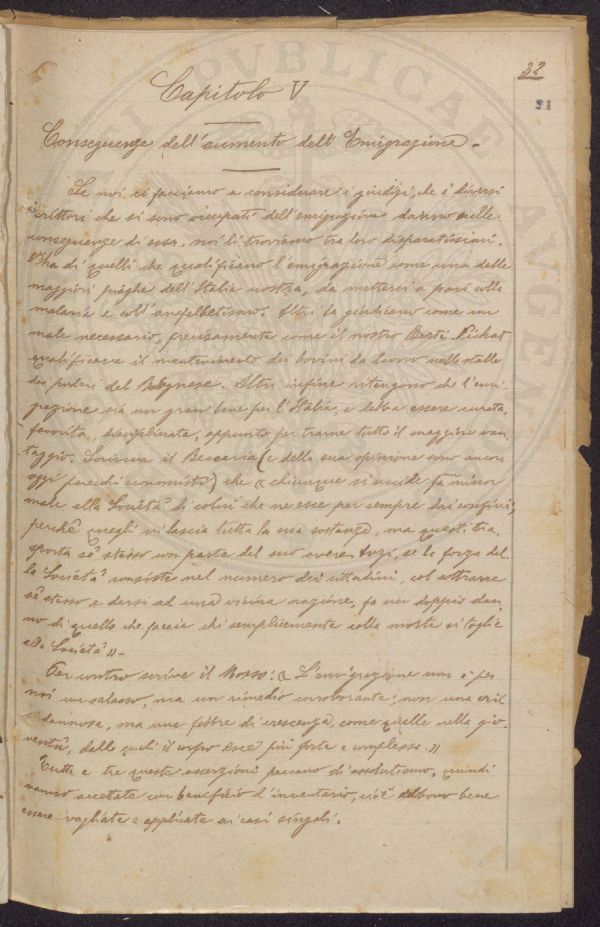 32
31
Capitolo V
Conseguenze dell'aumento dell'Emigrazione.
Se noi ci facciamo a considerare i giudizi, che i diversi
scrittori che si sono occupati dell'emigrazione danno sulle
conseguenze di essa, noi li troviamo tra loro disparatissimi.
V'ha di quelli che qualificano l'emigrazione come una delle
maggiori piaghe dell'Italia nostra, da mettersi a pari colla
malaria e coll'analfabetismo. Altri la giudicano come un
male necessario, precisamente come il nostro Berti Pichat
qualificava il mantenimento dei bovini da lavoro nelle stalle
dei poderi del Bolognese. Altri infine ritengono che l'emi-
grazione sia un gran bene per l'Italia, e debba essere curata,
favorita, disciplinata, appunto per trarne tutto il maggiore van-
taggio. Scriveva il Beccaria (e della sua opinione sono ancor
oggi parecchi economisti) che « chiunque si uccide fa minor
male alla Società di colui che ne esce per sempre dai confini,
perchè quegli vi lascia tutta la sua sostanza, ma questi tra-
sporta sè stesso con parte del suo avere. Anzi, se la forza del-
la Società consiste nel numero dei cittadini, col sottrarre
sè stesso e darsi ad una vicina nazione, fa un doppio dan-
no di quello che faccia chi semplicemente colla morte si toglie
alla Società ».
Per contro scrive il Mosso: « L'emigrazione non è per
noi un salasso, ma un rimedio corroborante; non una crisi
dannosa, ma una febbre di crescenza, come quelle nella gio-
ventù, dalle quali il corpo esce più forte e complesso. »
Tutte e tre queste asserzioni peccano di assolutismo, quindi
vanno accettate con beneficio d'inventario, cioè debbono bene
essere vagliate e applicate ai casi singoli.